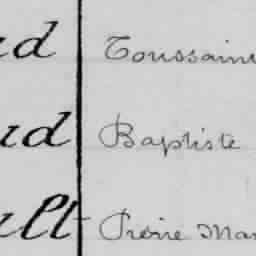 ud Toussain
ud Baptiste
ult Pierre Mar